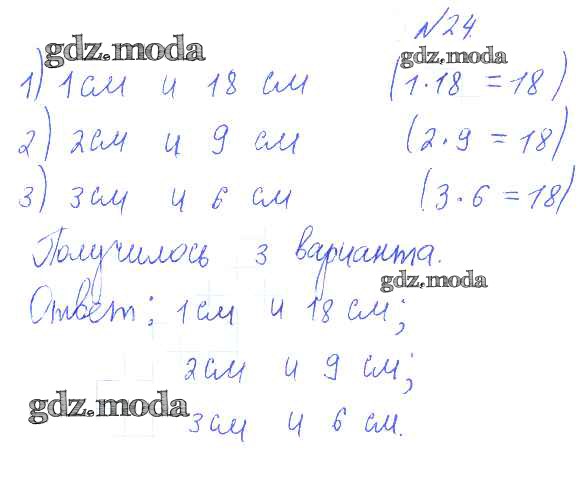 №24.
gdz.moda gdz.moda
1) 1см и 18 см (1·18 = 18)
2) 2см и 9 см (2·9 = 18)
3) 3см и 6 см (3·6 = 18)
Получилось 3 варианта.
gdz.moda
Ответ: 1см и 18 см;
2см и 9 см;
gdz.moda
3см и 6 см.